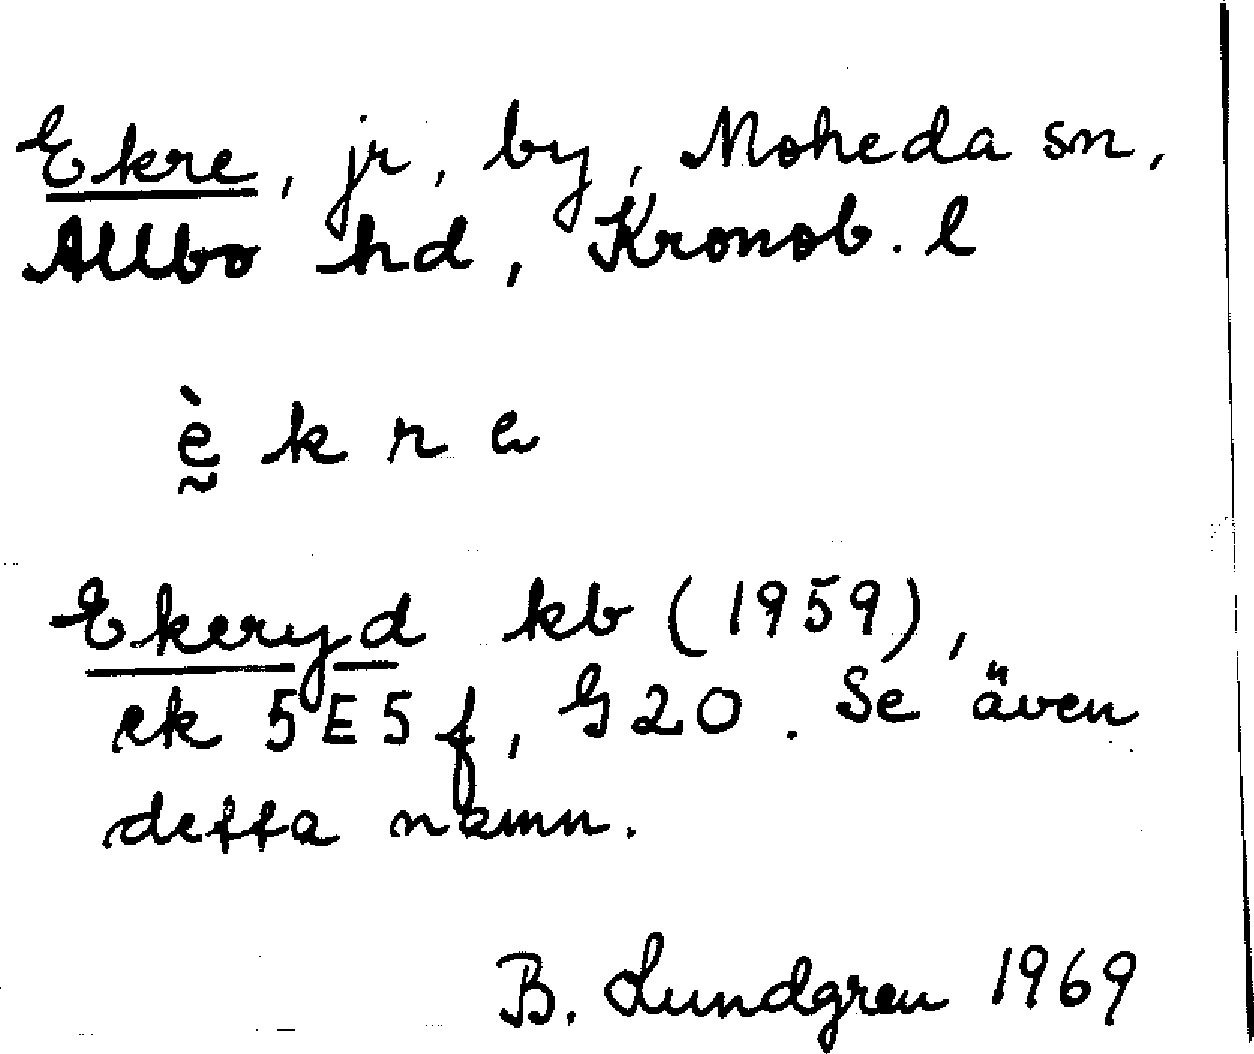 Ekre, jr, by, Moheda sn,
Allbo hd, Kronob. l
ḛ̀ k r e
Ekeryd kb (1959),
rk 5E5f, G20. Se även
detta namn.
B. Lundgren 1969